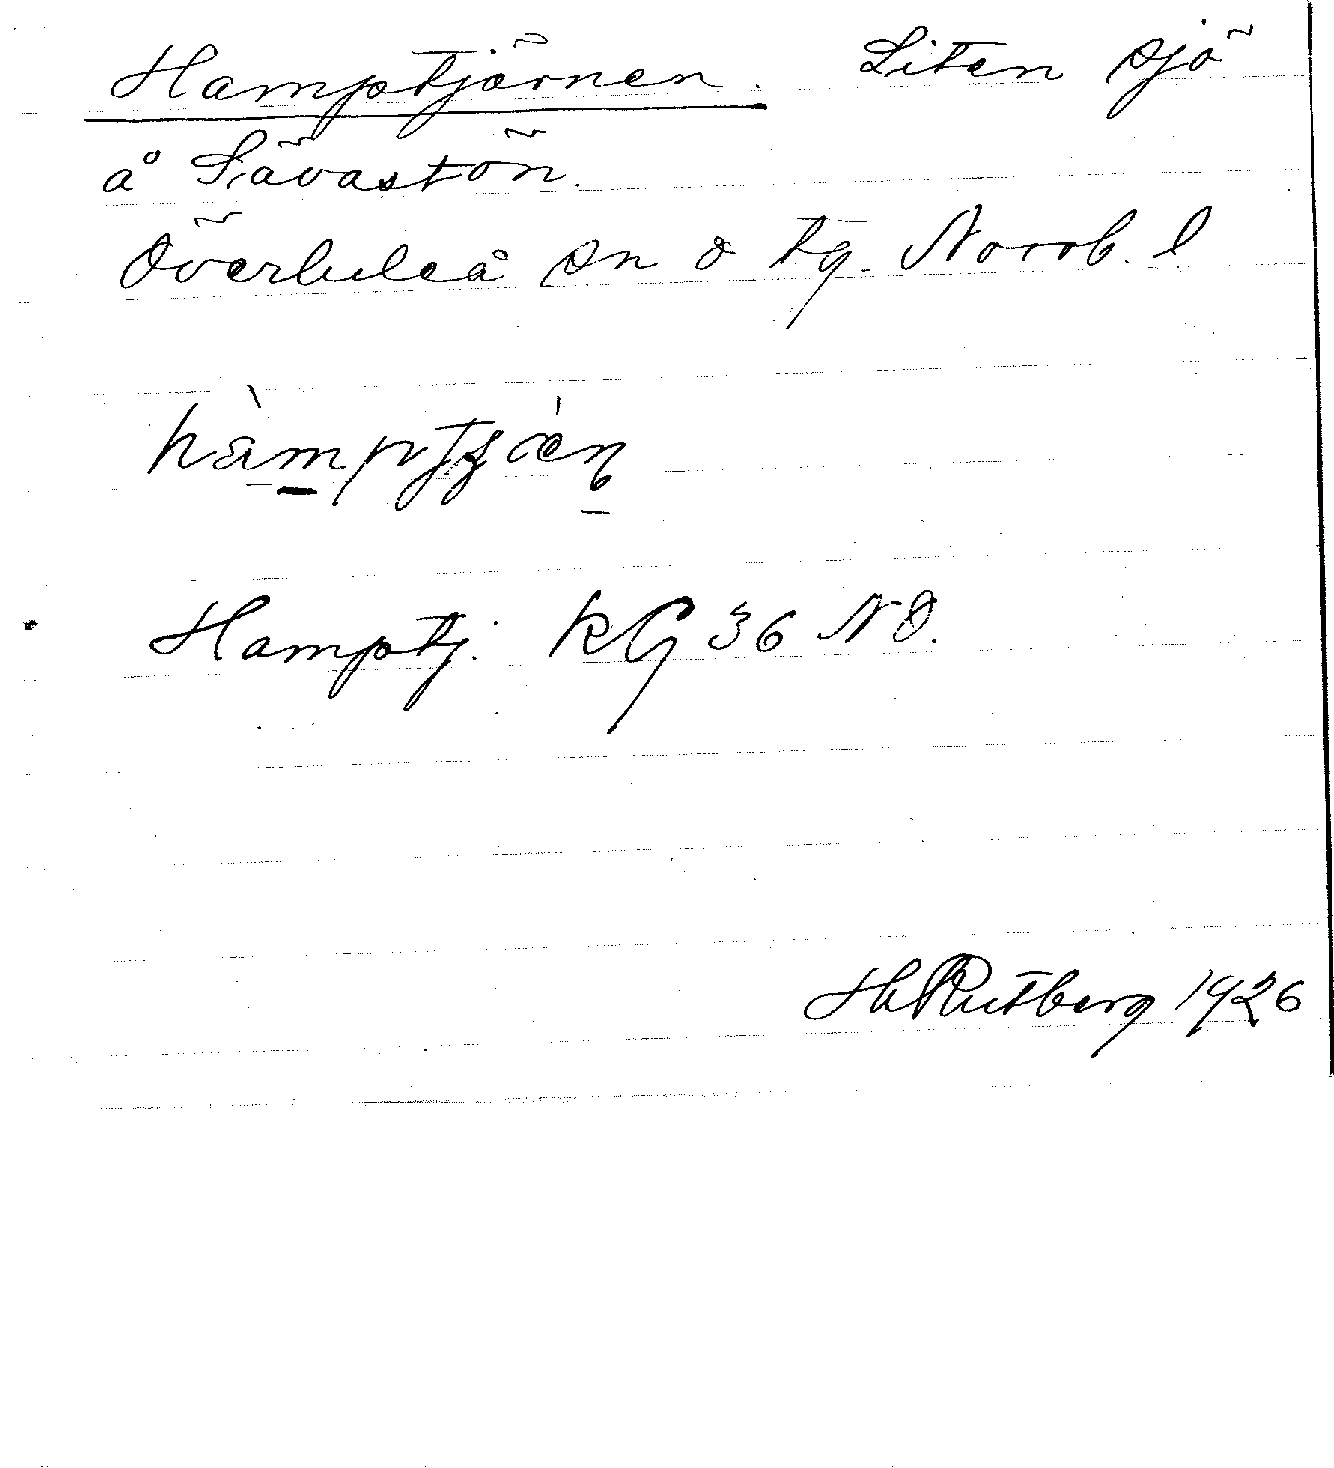 Hamptjärnen. Liten sjö
å Sävastön.
Överluleå sn o tg. Norrb. l
Hamptj. KG 36 NO.
H Rutberg 1926